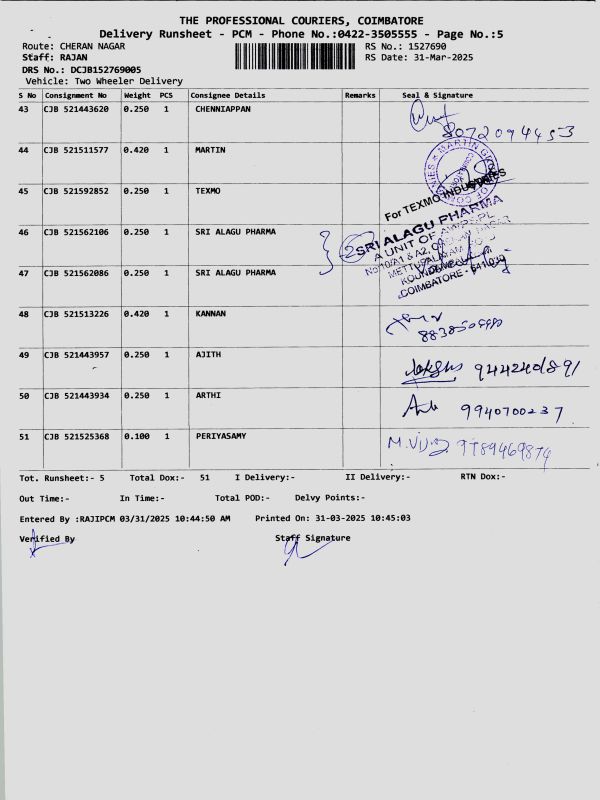 THE PROFESSIONAL COURIERS, COIMBATORE
Delivery Runsheet - PCM - Phone No.:0422-3505555 - Page No.:5
Route: CHERAN NAGAR RS No.: 1527690
Staff: RAJAN RS Date: 31-Mar-2025
DRS No.: DCJB152769005
Vehicle: Two Wheeler Delivery
S No Consignment No Weight PCS Consignee Details Remarks Seal & Signature
43 CJB 521443620 0.250 1 CHENNIAPPAN
8072094453
44 CJB 521511577 0.420 1 MARTIN
MARTIN
45 CJB 521592852 0.250 1 TEXMO
For TEXMO INDUSTRIES
46 CJB 521562106 0.250 1 SRI ALAGU PHARMA
2
SRI ALAGU PHARMA
A UNIT OF
47 CJB 521562086 0.250 1 SRI ALAGU PHARMA
COIMBATORE - 641 030
48 CJB 521513226 0.420 1 KANNAN
49 CJB 521443957 0.250 1 AJITH
50 CJB 521443934 0.250 1 ARTHI
9940700237
51 CJB 521525368 0.100 1 PERIYASAMY
9789469874
Tot. Runsheet:- 5 Total Dox:- 51 I Delivery:- II Delivery:- RTN Dox:-
Out Time:- In Time:- Total POD:- Delvy Points:-
Entered By :RAJIPCM 03/31/2025 10:44:50 AM Printed On: 31-03-2025 10:45:03
Verified By Staff Signature